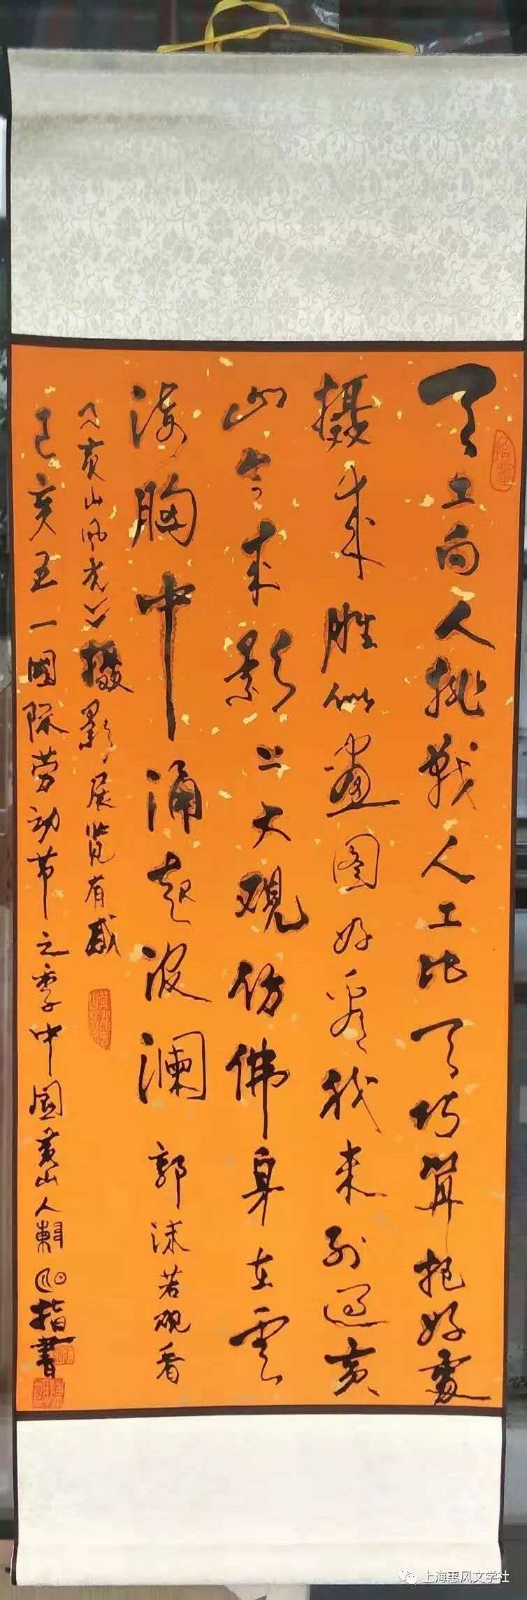 天工向人挑战人工比天巧算把好处
摄来胜似畫图好看我未到过黄
山今来影上大观仿佛身在雲
海胸中涌起波澜 郭沫若观看
《黄山风光》摄影展览有感
己亥五一國际劳动节之季中國黄山人指書
上海惠风文学社